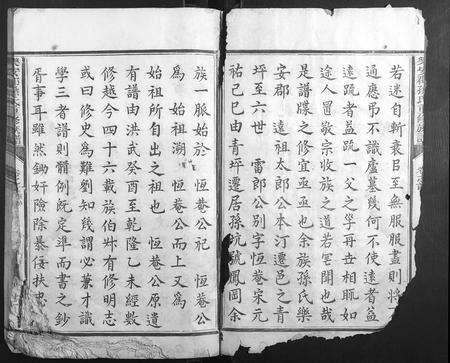 若迷自斬衰㠯至無服服盡則將
適應弔不識廬墓幾何不使遠者益
遠疏者益疏一父之孚再世相賑如
途人置敬宗收族之道若罔聞也哉
是譜牒之修宜亟亟也余族孫氏樂
安郡　遠祖太郎公本汀遷邑之青
坪至六世　雷郎公別字恒菴宋元
祐己巳由青坪遷居孫坑號鳳岡余
族一脈始於　恒菴公祀　恒菴公
為　始祖溯　恒菴公而上又為
始祖所自出之祖也　恒菴公原遺
有譜由洪武癸酉至乾隆乙未經數
修越今四十六載族伯叔有修明志
或曰修史為難劉知幾謂必兼才識
學三者譜則體例既定準而書之鈔
胥事耳雖然鋤奸險除暴佞扶忠